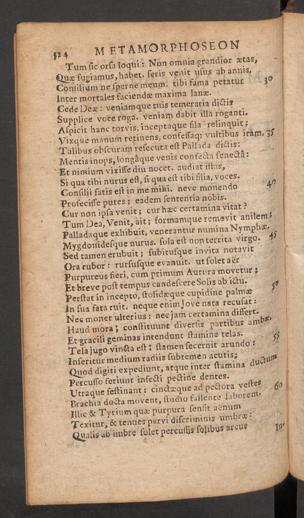 524 METAMORPHOSEON
Tum sic orsa loqui: Non omnia grandior ætas,
Quæ fugiamus, habet. seris venit usus ab annis,
Consilium ne sperne meum. tibi fama petatur 30
Inter mortales faciendæ maxima lanæ.
Cede Deæ: veniamque tuis temeraria dictis
Supplice voce roga. veniam dabit illa roganti.
Aspicit hanc torvis, inceptaque fila relinquit;
Vixque manum retinens, confessaq; vultibus iram, 35
Talibus obscuram resecuta est Pallada dictis:
Mentis inops, longâque venis confecta senectâ:
Et nimium vixisse diu nocet. audiat istas,
Si qua tibi nurus est, si qua est tibi filia, voces.
Consilii satis est in me mihi. neve monendo 40
Profecisse putes; eadem sententia nobis.
Cur non ipsa venit; cur hæc certamina vitat?
Tum Dea, Venit, ait; formamque removit anilem;
Palladaque exhibuit, venerantur numina Nymphæ,
Mygdonidesque nurus. sola est non territa virgo. 45
Sed tamen erubuit; subitusque invita notavit
Ora rubor: rursusque evanuit. ut solet aër
Purpureus fieri, cum primum Aurora movetur;
Et breve post tempus candescere Solis ab ictu.
Perstat in incepto, stolidæque cupidine palmæ 50
In sua fata ruit. neque enim Jove nata recusat:
Nec monet ulterius: nec jam certamina differt.
Haud mora; constituunt diversis partibus ambæ,
Et gracili geminas intendunt stamina telas.
Tela jugo vincta est: stamen secernit arundo: 55
Inseritur medium radiis subtemen acutis;
Quod digiti expediunt, atque inter stamina ductum
Percusso feriunt insecti pectine dentes.
Utraque festinant: cinctæque ad pectora vestes
Brachia docta movent, studio fallente laborem. 60
Illic & Tyrium quæ purpura sensit aënum
Texitur, & tenues parvi discriminis umbræ:
Qualis ab imbre solet percussis solibus arcus